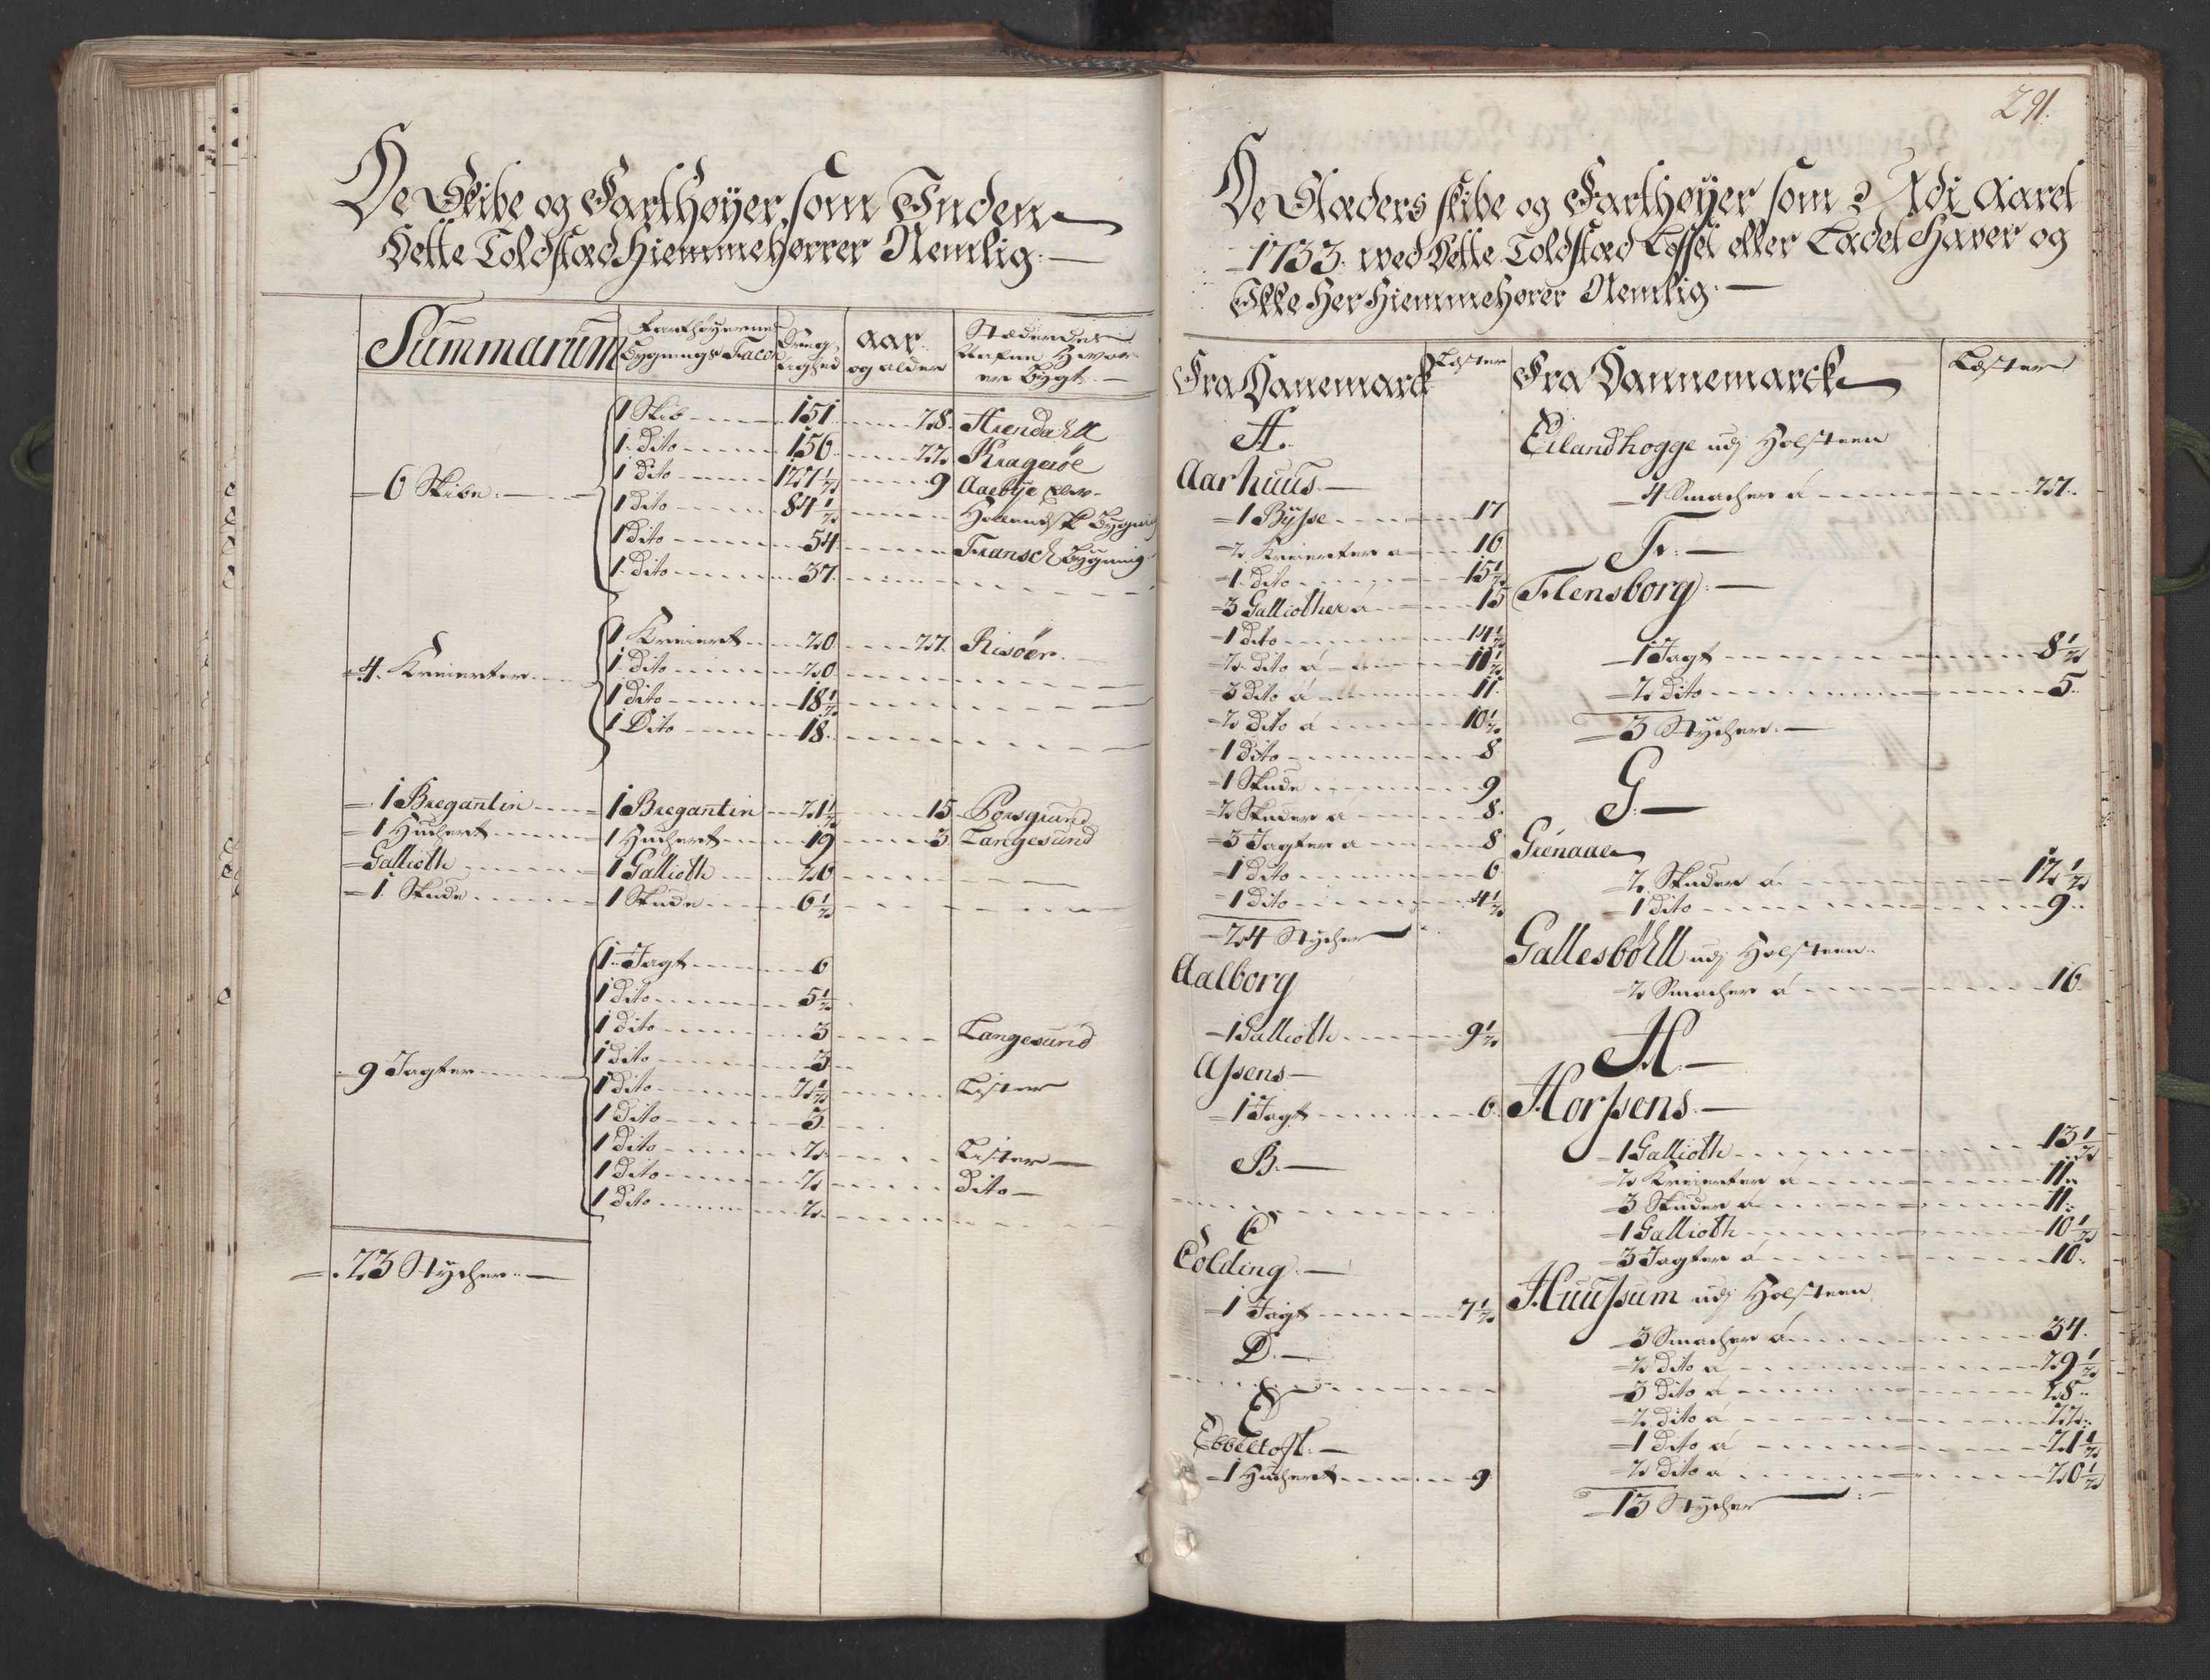 De Skibe og Farthøyer, som Inden
Dette Toldstæd Hiemmehørrer Nemlig.
Summarum
Farthøyernes Bygnings Facon
Dregtighed
Aar og alder
Stæderdes Nafne Hvor er Bygt.
6 Skibe
1 Skib 151 28 Arendahll
1 Dito 156 22 Kragerøe
1 Dito 127 1/2 9 Aaebÿe Elv
1 Dito 84 1/2 Hollandsk Bygning
1 Dito 54 Fransch Bygning
1 Dito 37
4 Kreierter
1 Kreiert 20 27 Risöer
1 Dito 20
1 Dito 18 1/2
1 Dito 18
1 Bregantin 1 Bregantin 21 1/2 15 Porsgrund
1 Huchert 1 Huchert 19 3 Langesund
Gallioth 1 Gallioth 26
1 Skude 1 Skude 6 1/2
9 Jagter
1 Jagt 6
1 Dito 5 1/2
1 Dito 3 Langesund
1 Dito 3
1 Dito 2 1/2 Lister
1 Dito 3
1 Dito 2 Lister
1 Dito 2 Dito
1 Dito 2
23 Stycher
291.
De Stæders skibe og Farthøyer som Udj Aaret
1733. wed Dette Toldstæd Losset eller Ladet Haver og
Ikke Her Hiemmehører Nemlig.
Fra Danemarck Læster
A.
Aarhuus
1 Bÿsse 17
2 Kreierter a 16
1 Dito 15 1/2
3 Galliother á 15
1 Dito 14 1/2
2 Dito á 11 1/2
3 Dito á 11
2 Dito á 10 1/2
1 Dito 8
1 Skude 9
2 Skuder á 8
3 Jagter a 8
1 Dito 6
1 Dito 4 1/2
24 Stycher
Aalborg
1 Gallioth 9 1/2
Assens
1 Jagt 6
B.
C
Colding
1 Jagt 7 1/2
D.
E
Ebbeltoft.
1 Huchert 9
Fra Dannemarck Læster
Eilandhogge udj Holsteen
4 Smacher á 27
F.
Flensborg
1 Jagt 8 1/2
2 Dito 5
3 Stycher
G
Grenaae
2 Skuder á 12 1/2
1 Dito 9
Gallesbøhll udj Holsteen
2 Smacher á 16
H.
Horssens
1 Gallioth 13 1/2
2 Kreierter á 11
3 Skuder a 11
1 Gallioth 10 1/2
3 Jagter á 10
Huussum udj Holsteen
3 Smacher á 34
2 Dito a 29 1/2
3 Dito á 28
2 Dito á 22
1 Dito á 21 1/2
2 Dito a 20 1/2
13 Stycher